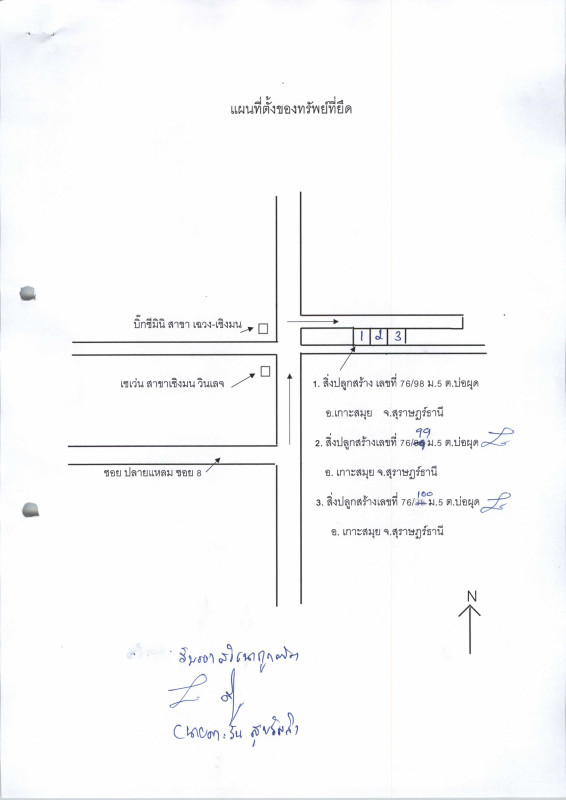 แผนที่ตั้งของทรัพย์ที่ยึด
บิ๊กซีมินิ สาขา เฉวง-เชิงมน
1 2 3
เซเว่น สาขาเชิงมน วินเลจ
1. สิ่งปลูกสร้าง เลขที่ 76/98 ม.5 ต.บ่อผุด
อ.เกาะสมุย จ.สุราษฎร์ธานี
2. สิ่งปลูกสร้างเลขที่ 76/99 ม.5 ต.บ่อผุด
อ. เกาะสมุย จ.สุราษฎร์ธานี
3. สิ่งปลูกสร้างเลขที่ 76/100 ม.5 ต.บ่อผุด
อ. เกาะสมุย จ.สุราษฎร์ธานี
ซอย ปลายแหลม ซอย 8
N